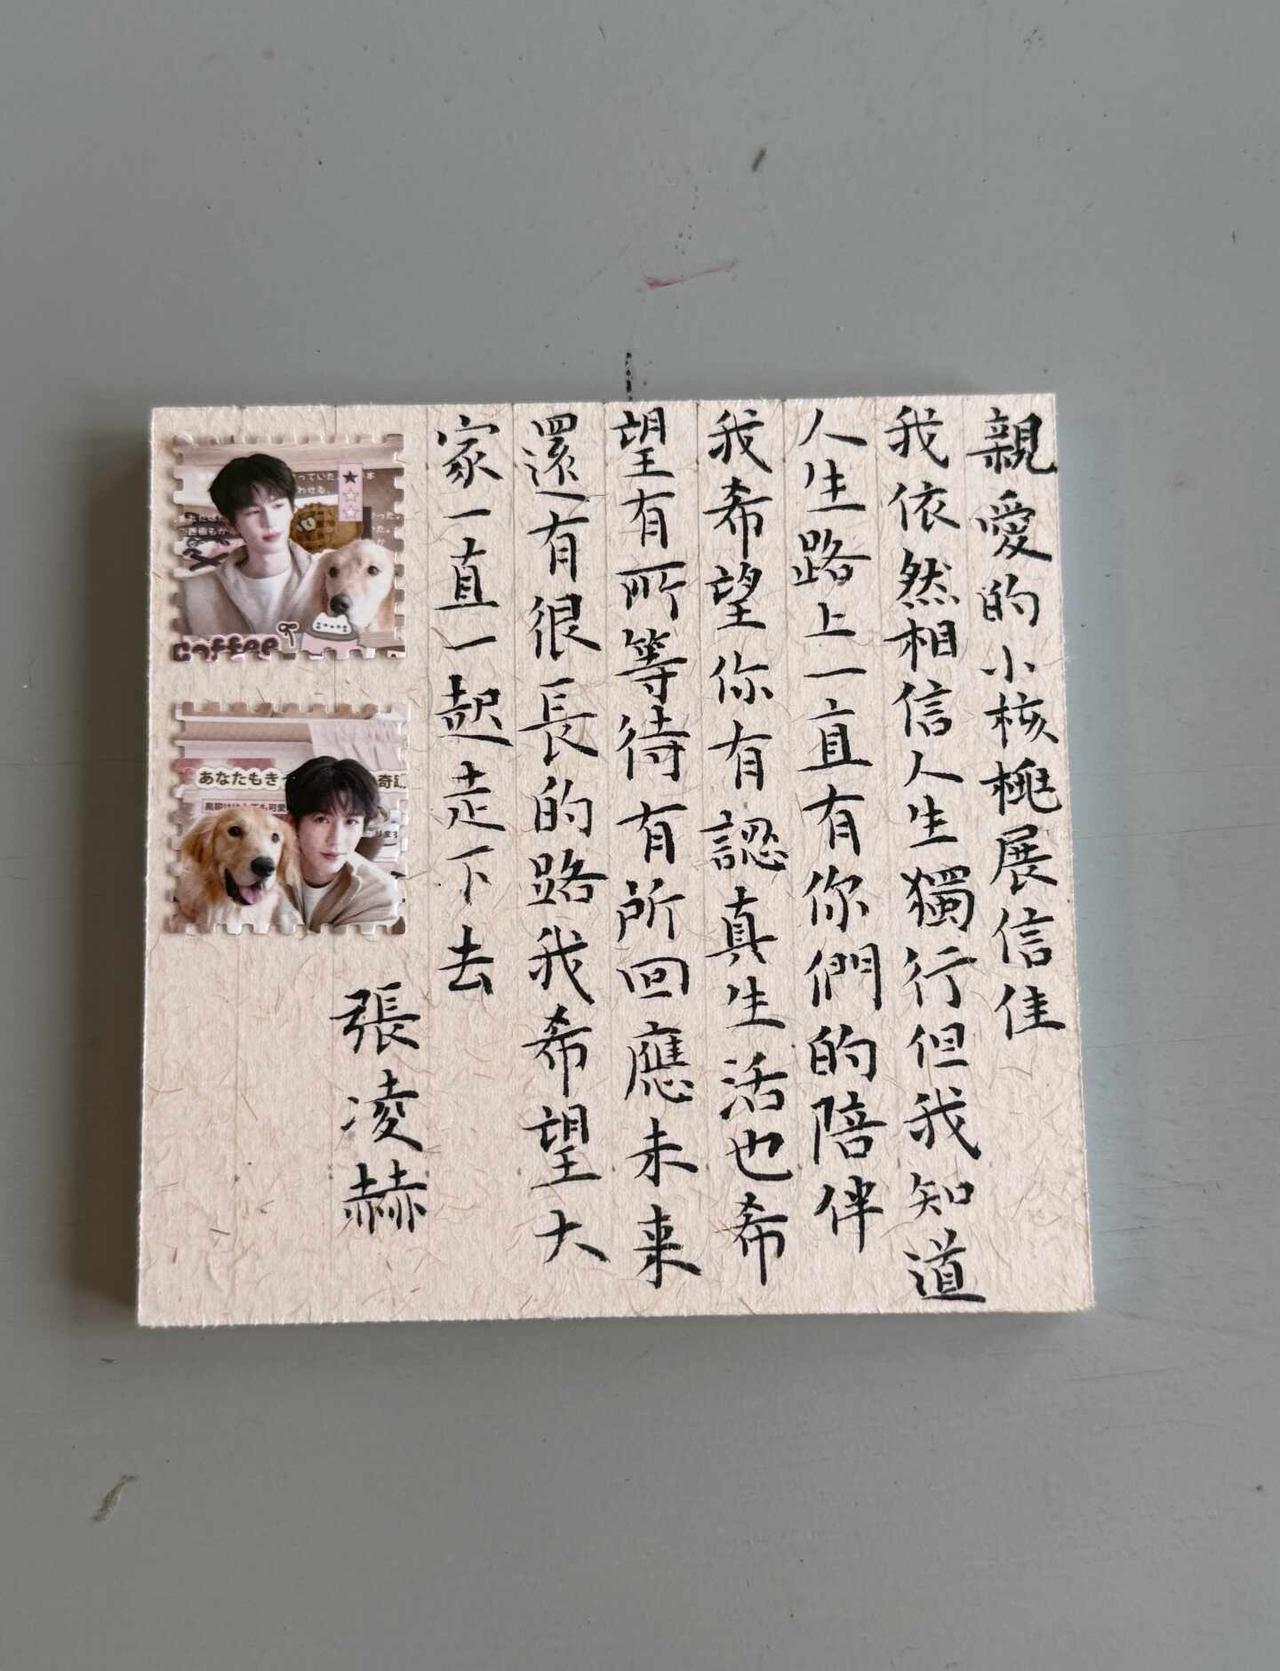 親愛的小核桃展信佳
我依然相信人生獨行但我知道
人生路上一直有你們的陪伴
我希望你有認真生活也希
望有所等待有所回應未來
還有很長的路我希望大
家一直一起走下去
張凌赫
coffee
あなたもきっ